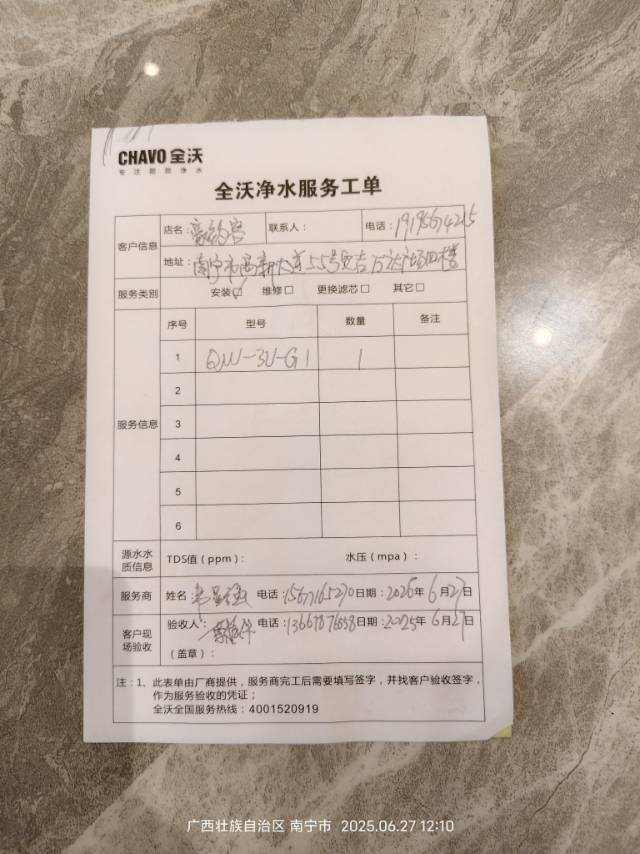 CHAVO 全沃
专注厨房净水
全沃净水服务工单
客户信息 店名: 联系人: 电话:
地址:南宁市高新大道55号安吉万达广场四楼
服务类别 安装☑ 维修□ 更换滤芯□ 其它□
服务信息 序号 型号 数量 备注
1 QW-3U-G1 1
2
3
4
5
6
源水水质信息 TDS值(ppm): 水压(mpa):
服务商 姓名: 电话:15677165270 日期:2025年6月27日
客户现场验收 验收人: 电话:13667876858 日期:2025年6月27日
(盖章):
注:1、此表单由厂商提供,服务商完工后需要填写签字,并找客户验收签字,
作为服务验收的凭证;
全沃全国服务热线:4001520919
广西壮族自治区 南宁市 2025.06.27 12:10